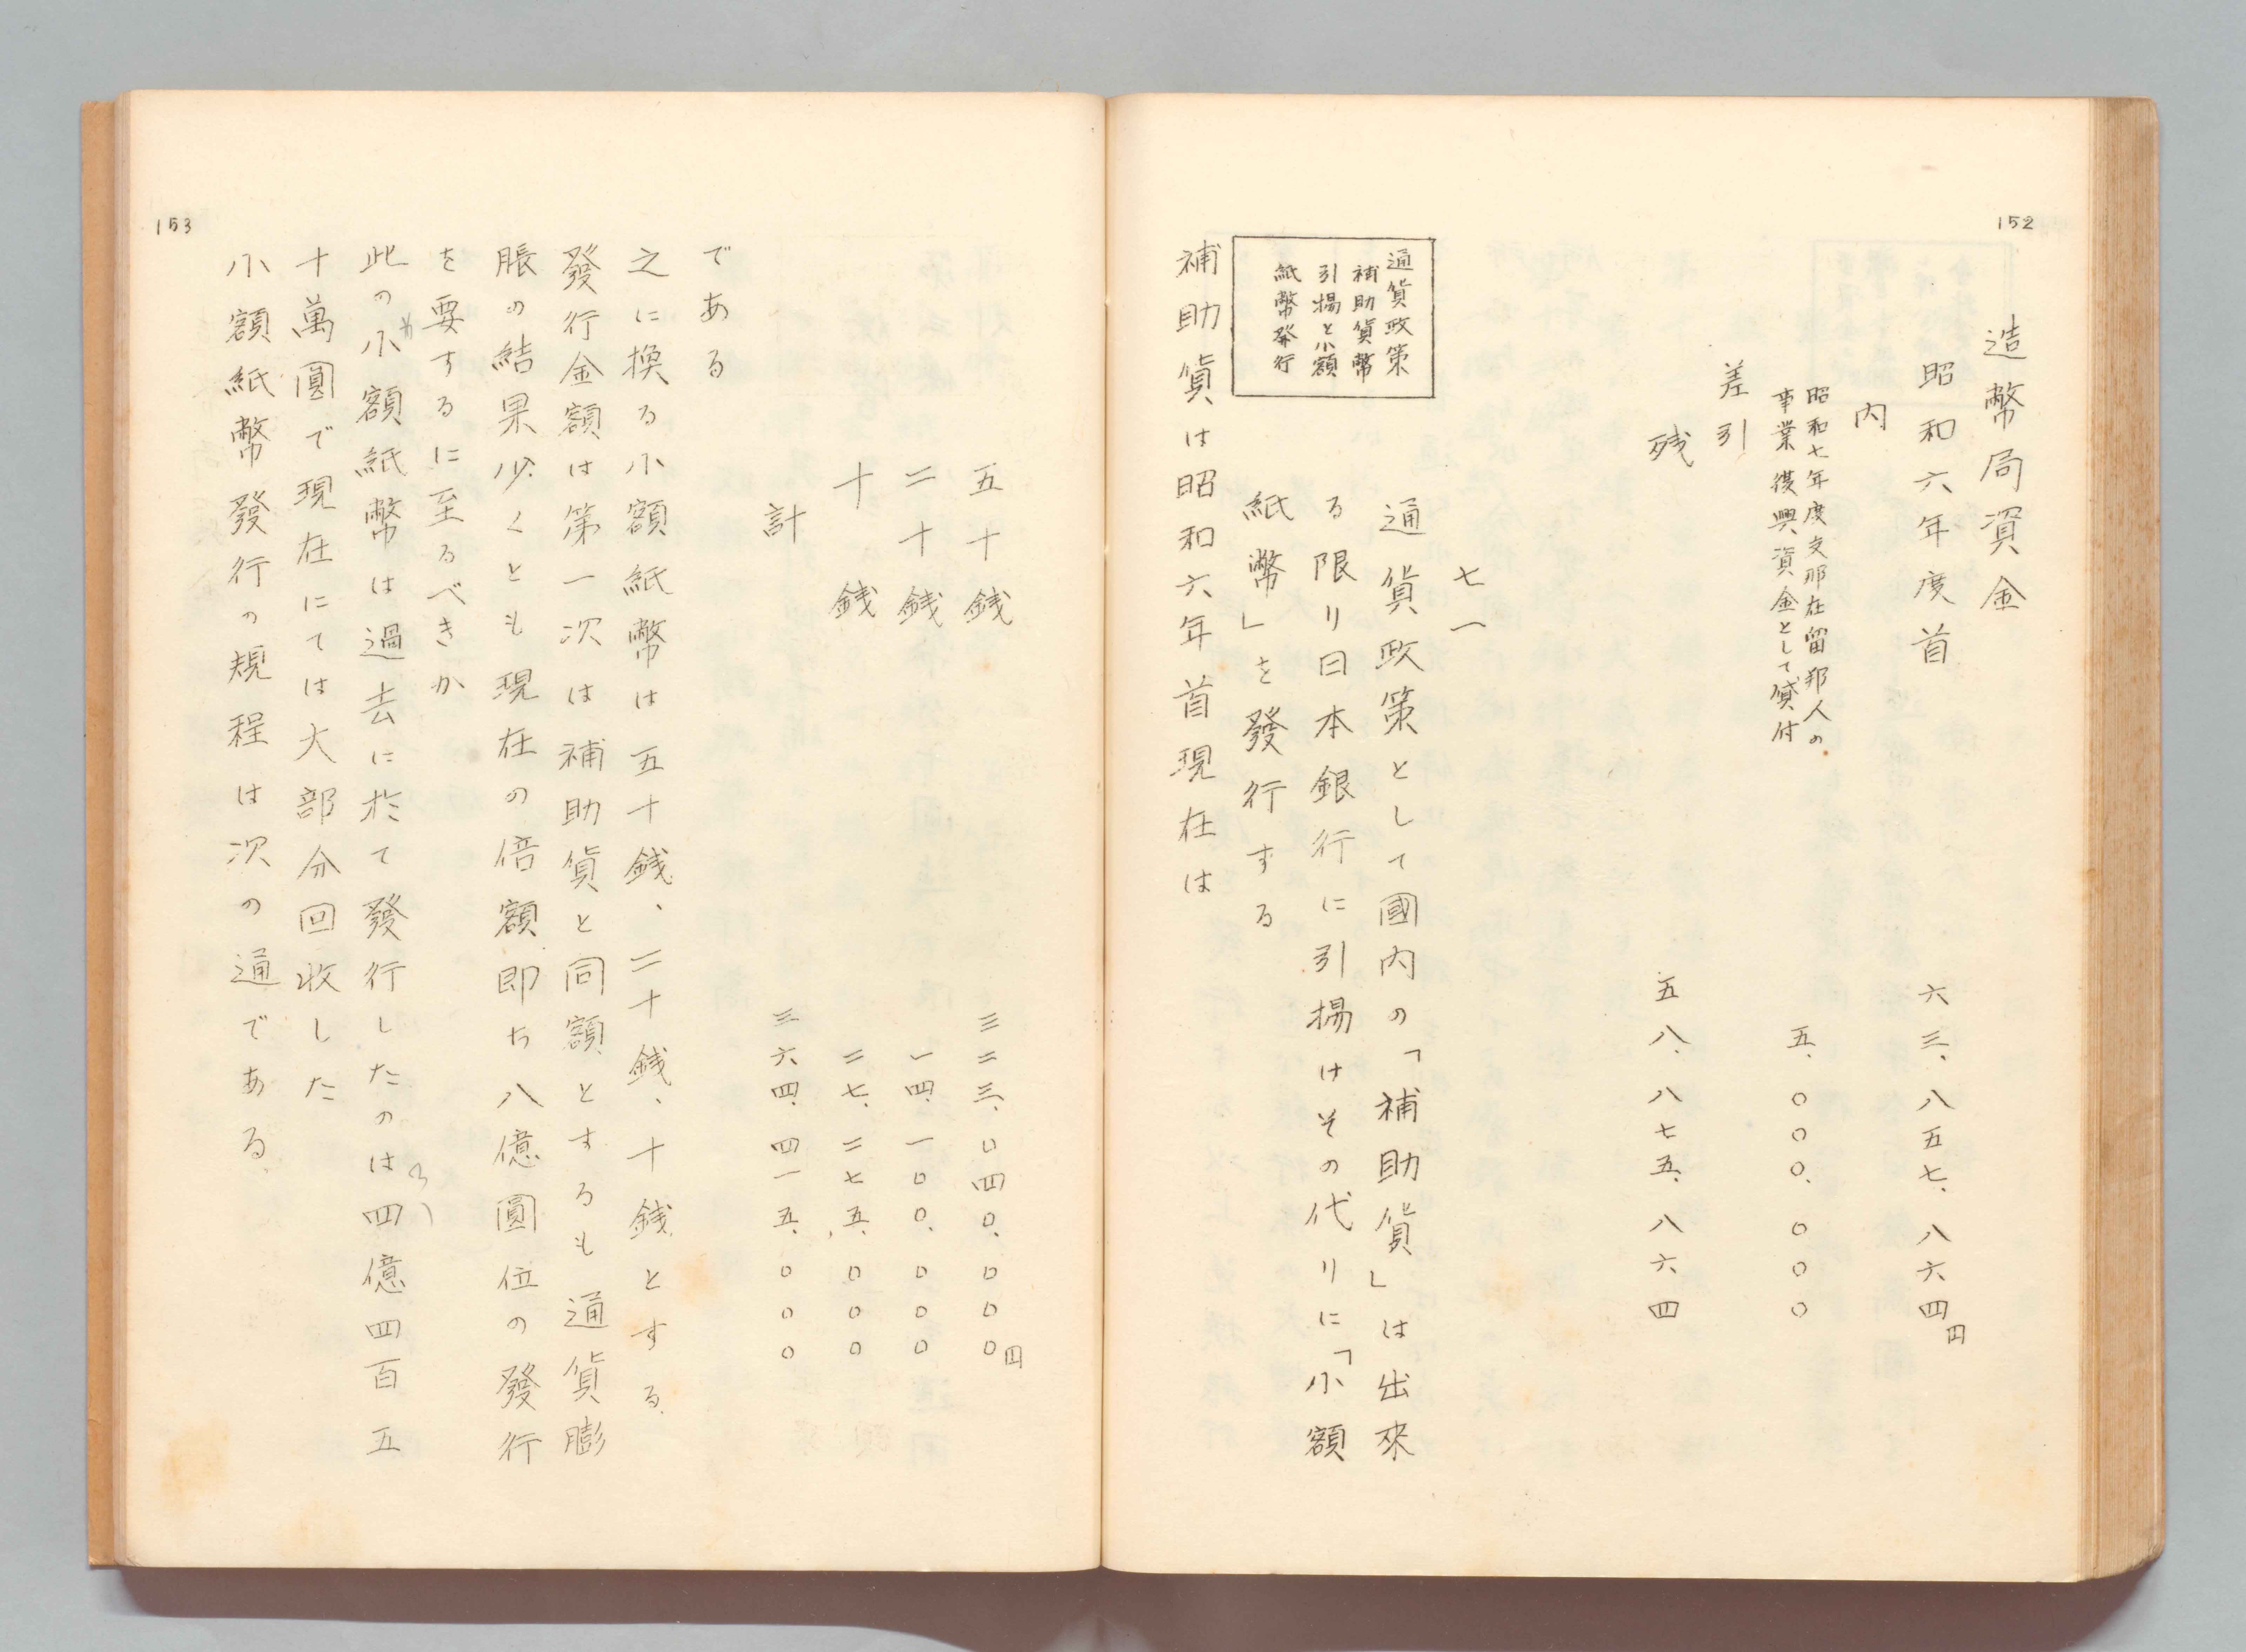 152
造幣局資金
昭和六年度首　六三、八五七、八六四円
内
昭和七年度支那在留邦人の
事業復興資金として貸付　五、〇〇〇、〇〇〇
差引
残　五八、八七五、八六四
七一
通貨政策
補助貨幣
引揚と小額
紙幣発行
通貨政策として國内の「補助貨」は出來
る限り日本銀行に引揚けその代りに「小額
紙幣」を發行する
補助貨は昭和六年首現在は
153
五十銭　三二三、〇四〇、〇〇〇円
二十銭　一四、一〇〇、〇〇〇
十銭　二七、二七五、〇〇〇
計　三六四、四一五、〇〇〇
である
之に換る小額紙幣は五十銭、二十銭、十銭とする
發行金額は第一次は補助貨と同額とするも通貨膨
脹の結果少くとも現在の倍額即ち八億圓位の發行
を要するに至るべきか
此の小額紙幣は過去に於て發行したのは四億四百五
十萬圓で現在にては大部分回收した
小額紙幣發行の規程は次の通である